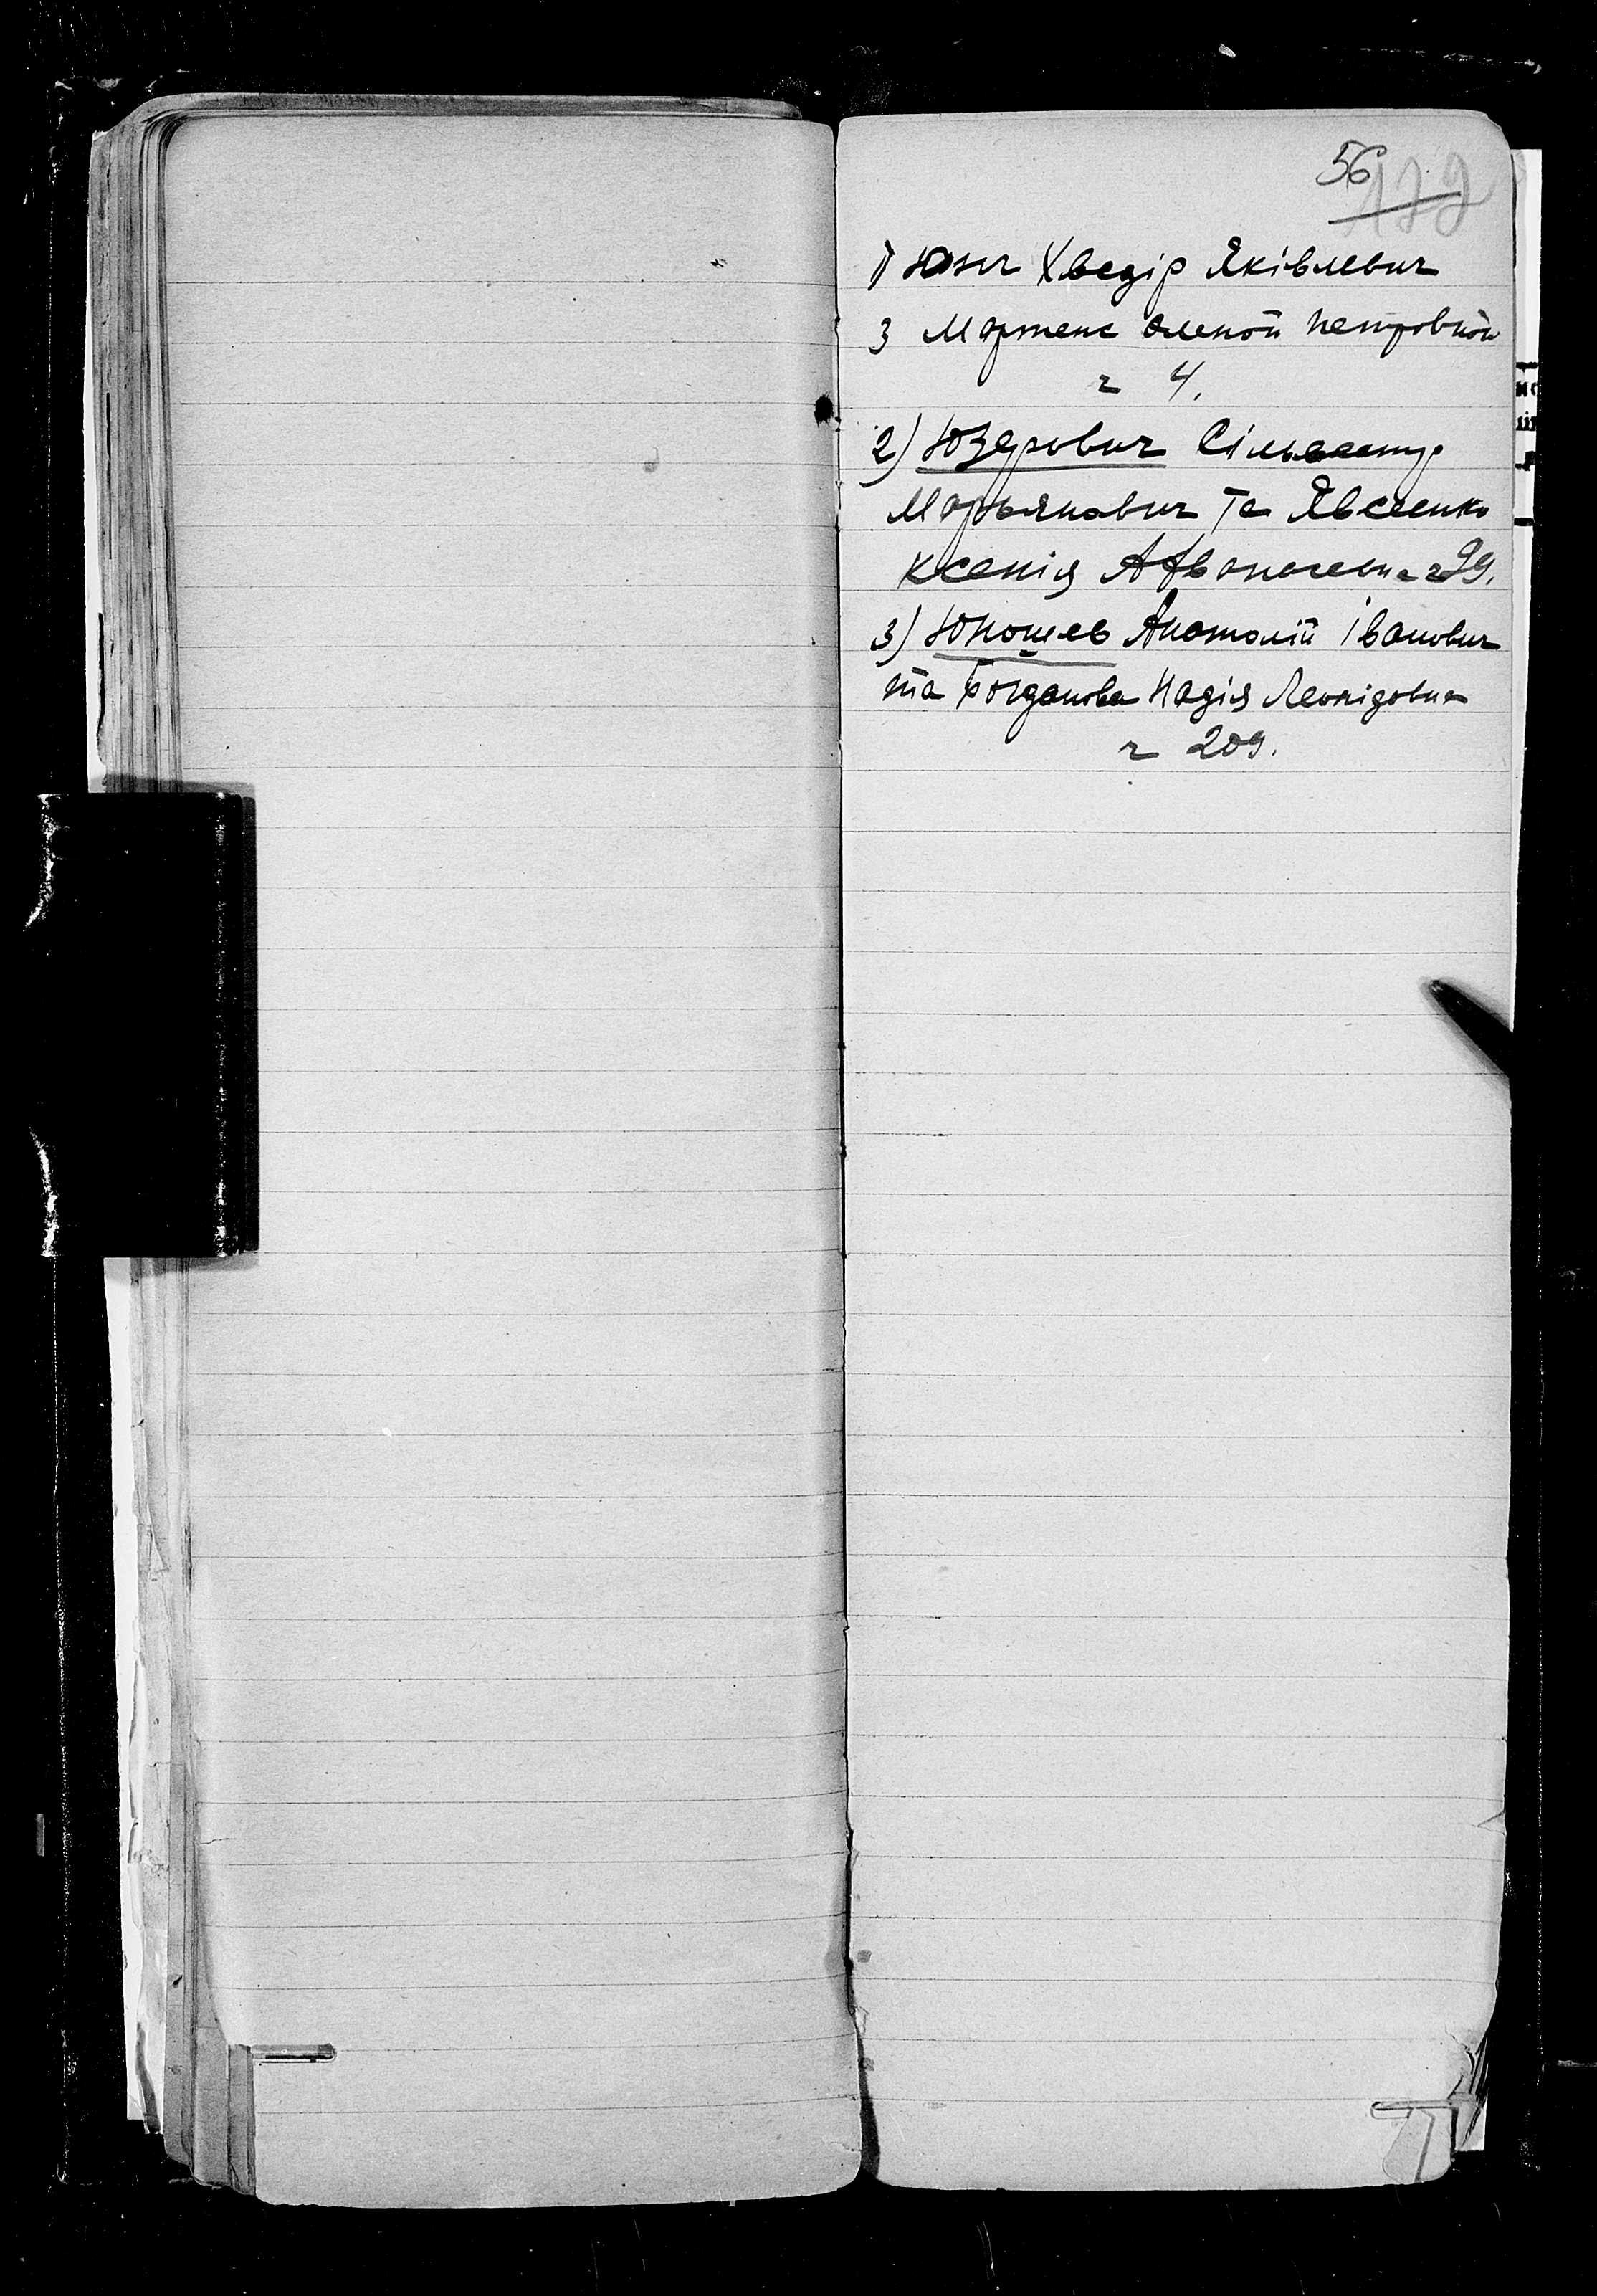 56
172
1) Юзич Хведір Яківлевич
з Мартенс Оленой Петровной
ч 4.
2) Юзерович Сільвестр
Марьянович та Явсеенко
Ксенія ч 99.
3) Юношев Анатолій Іванович
та Богданова Надія Леонідовна
ч 209.